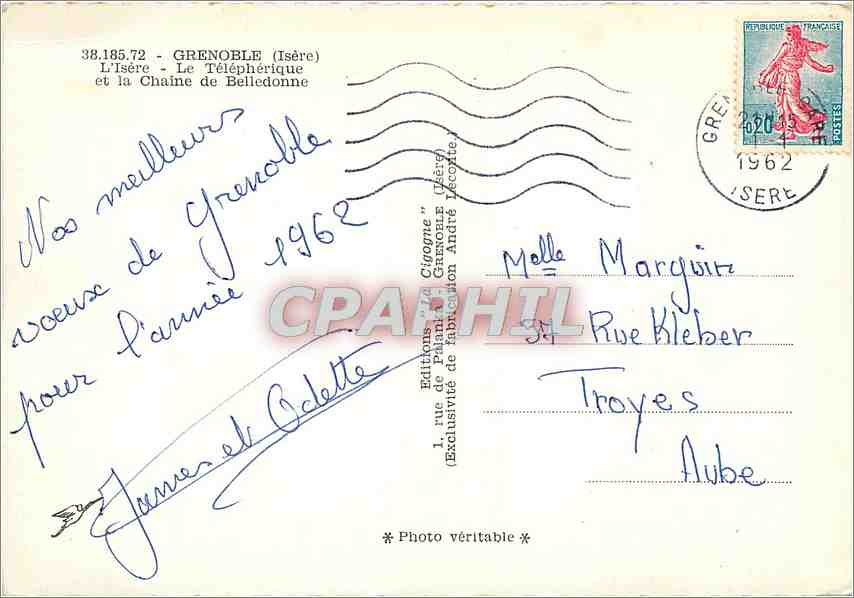 38.185.72 - GRENOBLE (Isère)
L'Isère - Le Téléphérique
et la Chaîne de Belledonne
Nos meilleurs
vœux de Grenoble
pour l'année 1962
James et Odette
Editions "La Cigogne"
1, rue de Palanka - GRENOBLE (Isère)
(Exclusivité de fabrication André Leconte.)
REPUBLIQUE FRANÇAISE
0,20
POSTES
GRENOBLE GARE
1962
ISERE
Melle Marguin
37 Rue Kléber
Troyes
Aube
CPARHIL
* Photo véritable *